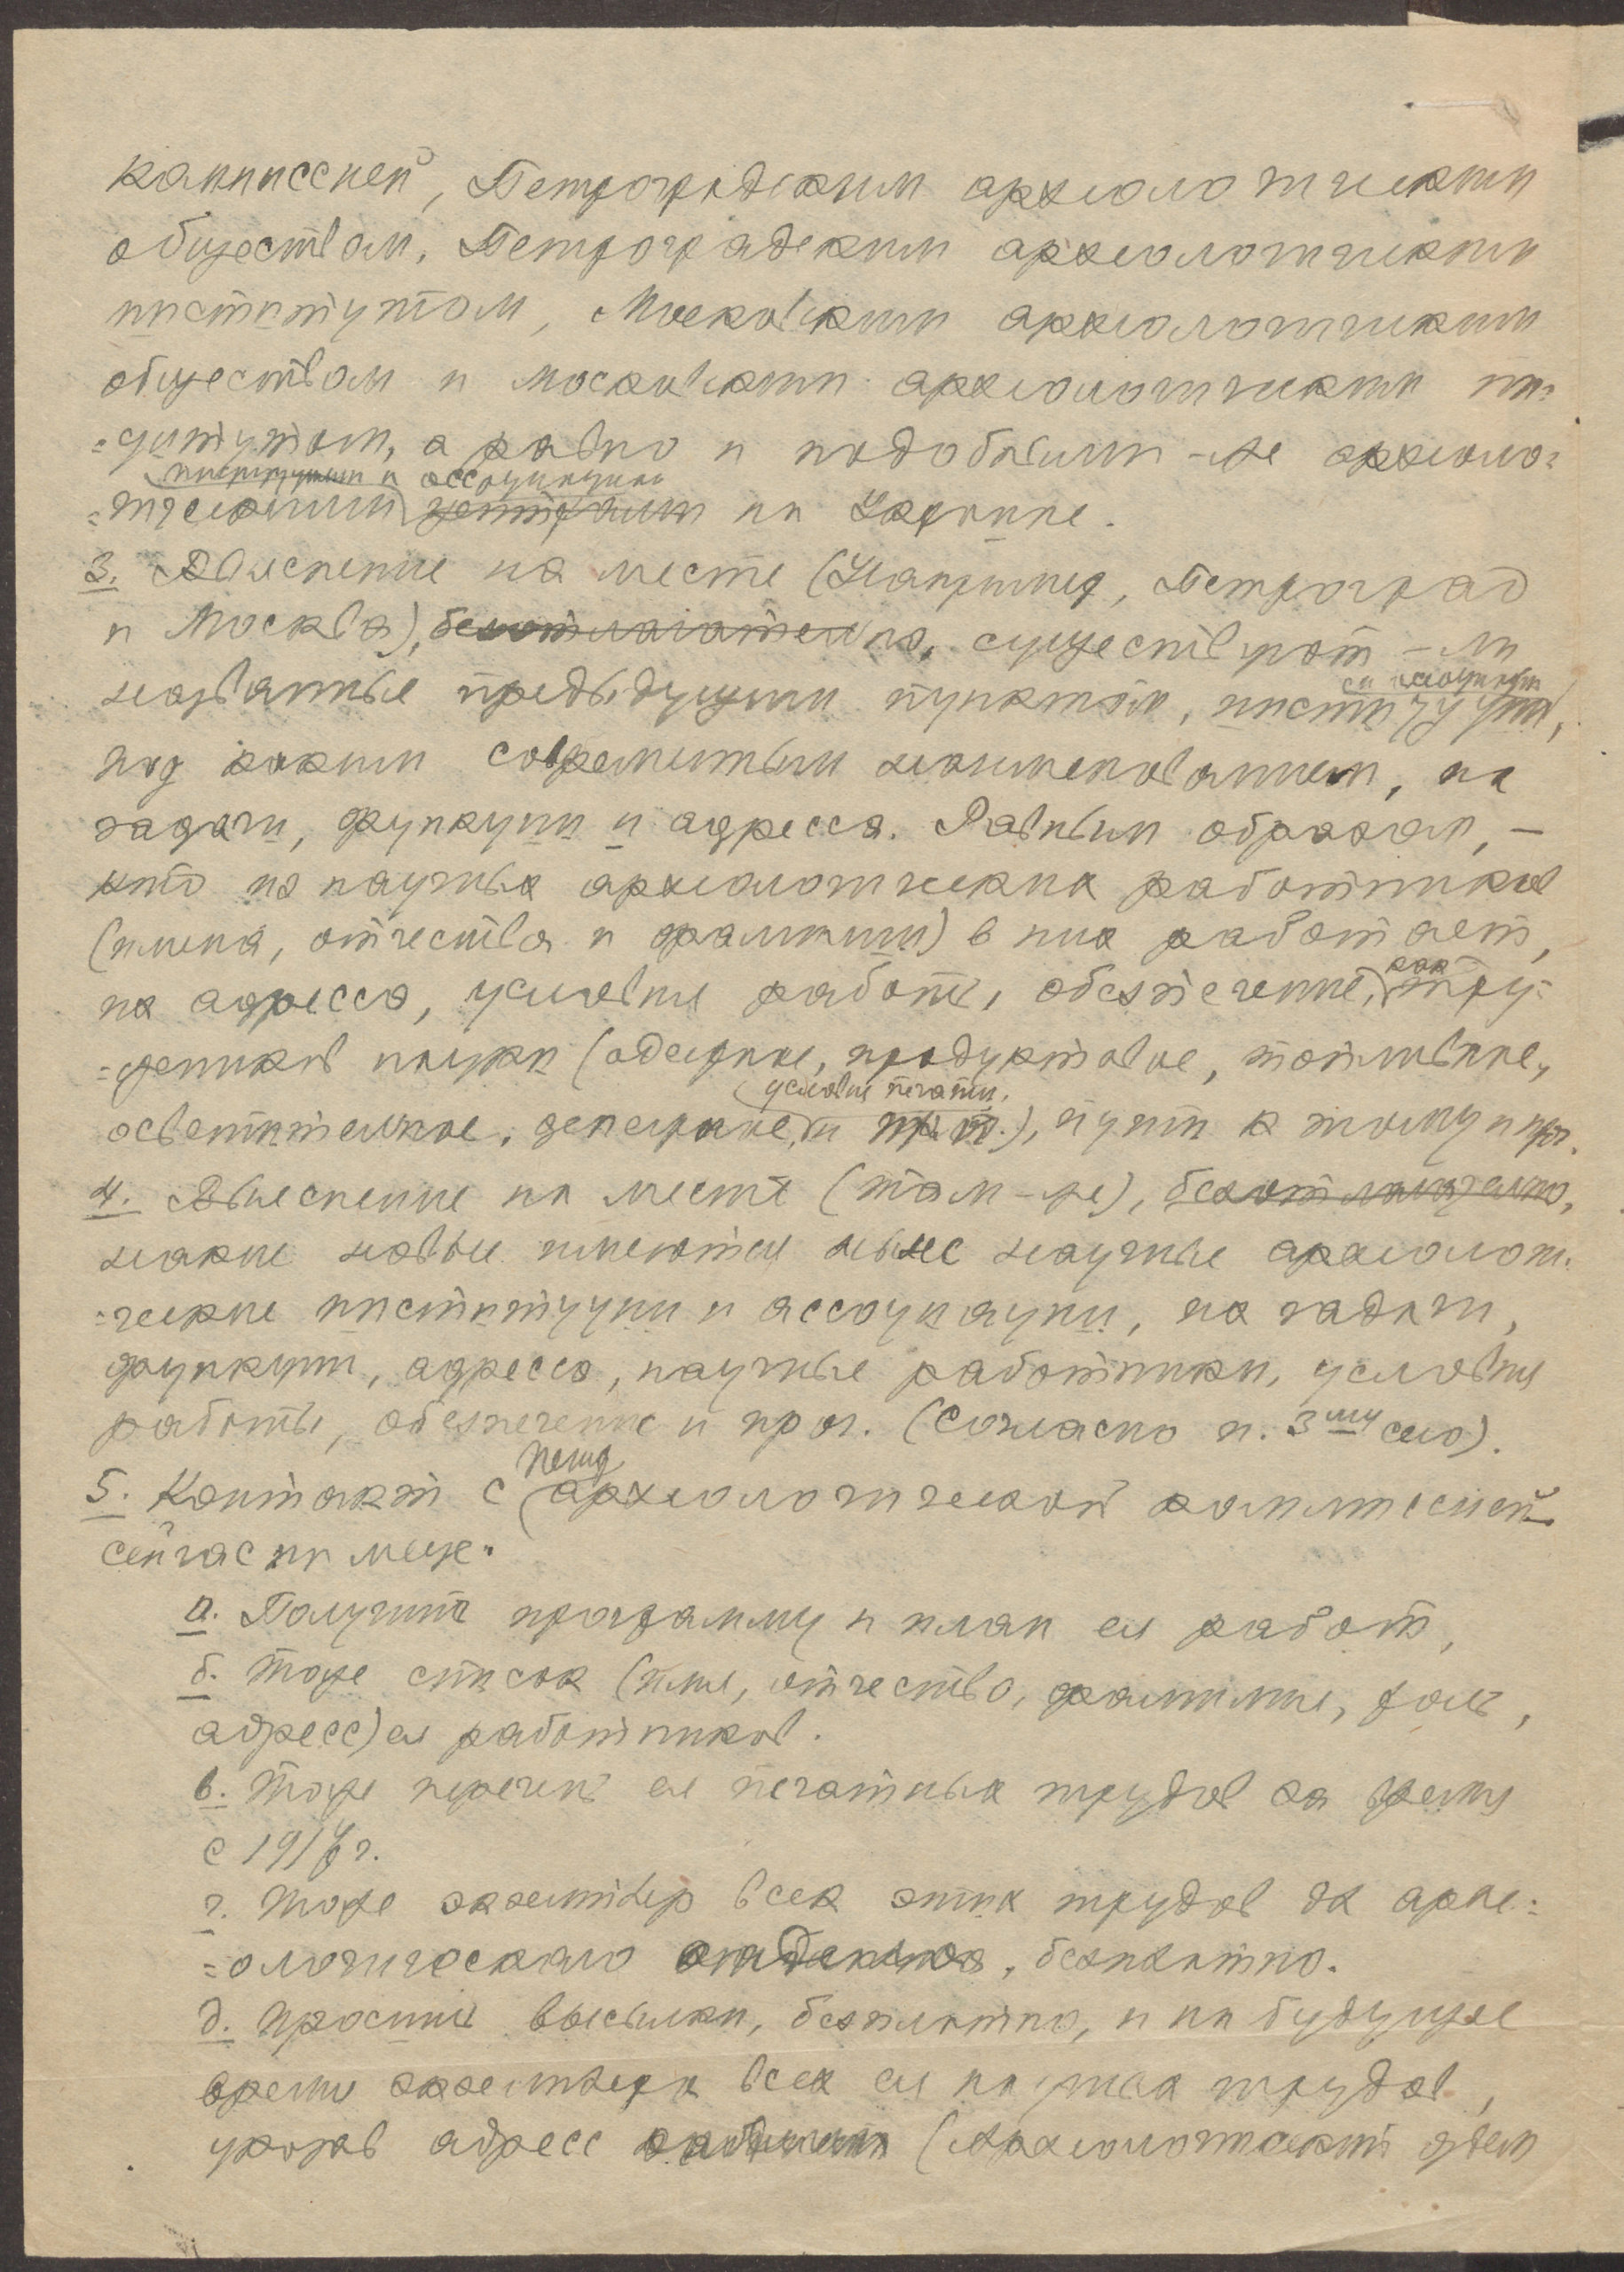 коммиссией, Петроградским археологическим
обществом, Петроградским археологическим
институтом, Московским археологическим
обществом и московским археологическим ин=
=ститутом, а равно и подобными-же археоло=
институциям и ассоциациям
=гическими центрами на Украине.
3. Выяснение на месте (Например, Петроград
и Москва), безотлагательно, существуют-ли
и ассоциации
названные предыдущим пунктом, институции,
под каким современным наименованием, их
задачи, функции и адресса. Равным образом, –
кто из научных археологических работников
(имена, отчества и фамилии) в них работает,
их адресса, условия работы, обезпечение,
как
тру=
=деников науки (одежное, продуктовое, топливное,
условия печати,
осветительное, денежное, и пр. т.), пути к тому и проч.
4. Выяснение на месте (там-же), безотлагательно,
какие новые имеются ныне научные археологи=
=ческие институции и ассоциации, их задачи,
функции, адресса, научные работники, условия
работы, обезпечение и проч. (Согласно п. 3му сего).
5. Контакт с археологической коммиссией
сейчас-же.
а. Получить программу и план ея работ,
б. Тоже список (имя, отчество, фамилия, роль,
адресс) ея работников.
в. Тоже перечень ея печатных трудов за время
с 1917 г.
г. Тоже экземпляр всех этих трудов для архе=
=ологическаго , безплатно.
д. Просить высылки, безплатно, и на будущее
время экземпляра всех ея научных трудов,
указав адресс (Археологический отдел